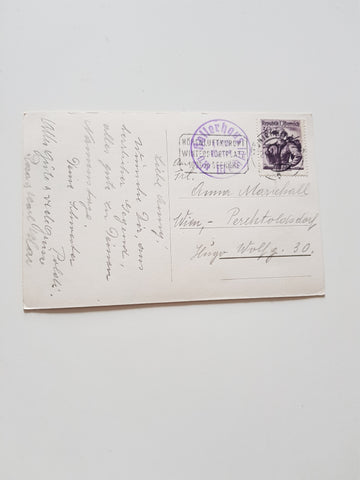 Liebe Anny.
Wünsche Dir, aus
herrlicher Gegend,
alles gute zu Deinem
Namenstage.
Deine Schwester
Poldi.
Alles Gute
HÖHENLUFTKURORT
WINTERSPORTPLATZ
SEEHÖHE
Republik Österreich
An
Frl.
Anna Marschall
Wien, Perchtoldsdorf
Hugo Wolfg. 30.